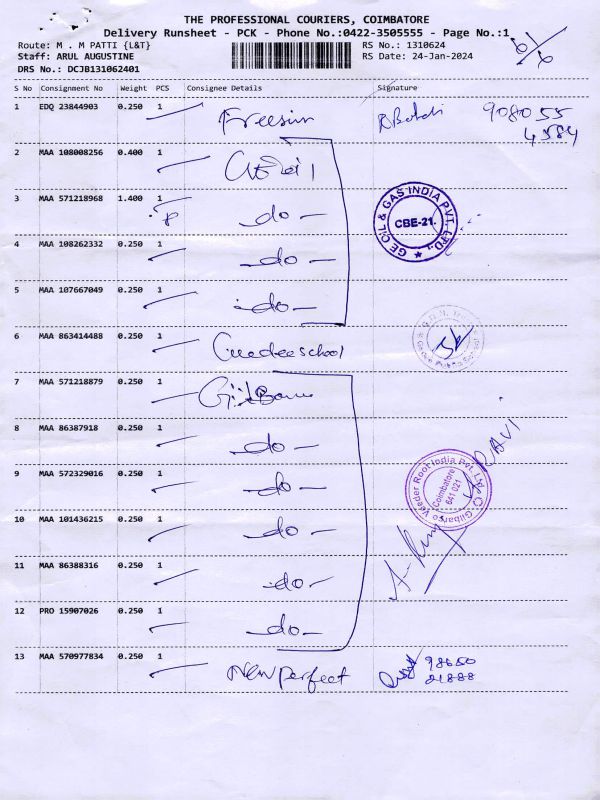 THE PROFESSIONAL COURIERS, COIMBATORE
Delivery Runsheet - PCK - Phone No.:0422-3505555 - Page No.:1
Route: M . M PATTI {L&T}
RS No.: 1310624
Staff: ARUL AUGUSTINE
RS Date: 24-Jan-2024
DRS No.: DCJB131062401
S No Consignment No Weight PCS Consignee Details Signature
1 EDQ 23844903 0.250 1 Freesun 908055
4584
2 MAA 108008256 0.400 1
3 MAA 571218968 1.400 1 do
GE OIL & GAS INDIA PVT. LTD.
CBE-21.
4 MAA 108262332 0.250 1 do
5 MAA 107667049 0.250 1 do
6 MAA 863414488 0.250 1 school
7 MAA 571218879 0.250 1
8 MAA 86387918 0.250 1 do
RAVI
9 MAA 572329016 0.250 1 do
Gilbarco Veeder Root India Pvt. Ltd.
Coimbatore
641 021
10 MAA 101436215 0.250 1 do
11 MAA 86388316 0.250 1 do
12 PRO 15907026 0.250 1 do
13 MAA 570977834 0.250 1 New perfect 98650
21888